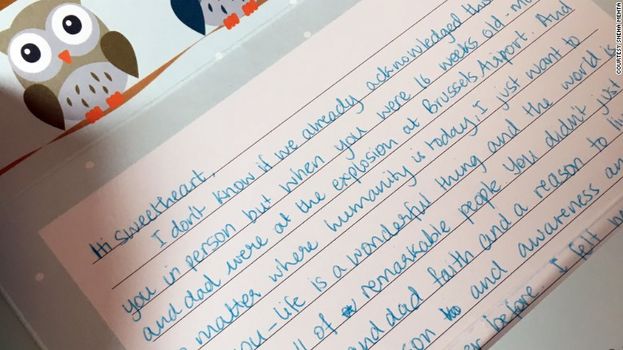 Hi sweetheart,
I don't know if we already acknowledged this
you in person but when you were 16 weeks old - mom
and dad were at the explosion at Brussels Airport. And
matter where humanity is today, I just want to
you - life is a wonderful thing and the world is
of remarkable people. You didn't just
and dad faith and a reason to
and awareness
before. I felt
COURTESY SNEHA MEHTA